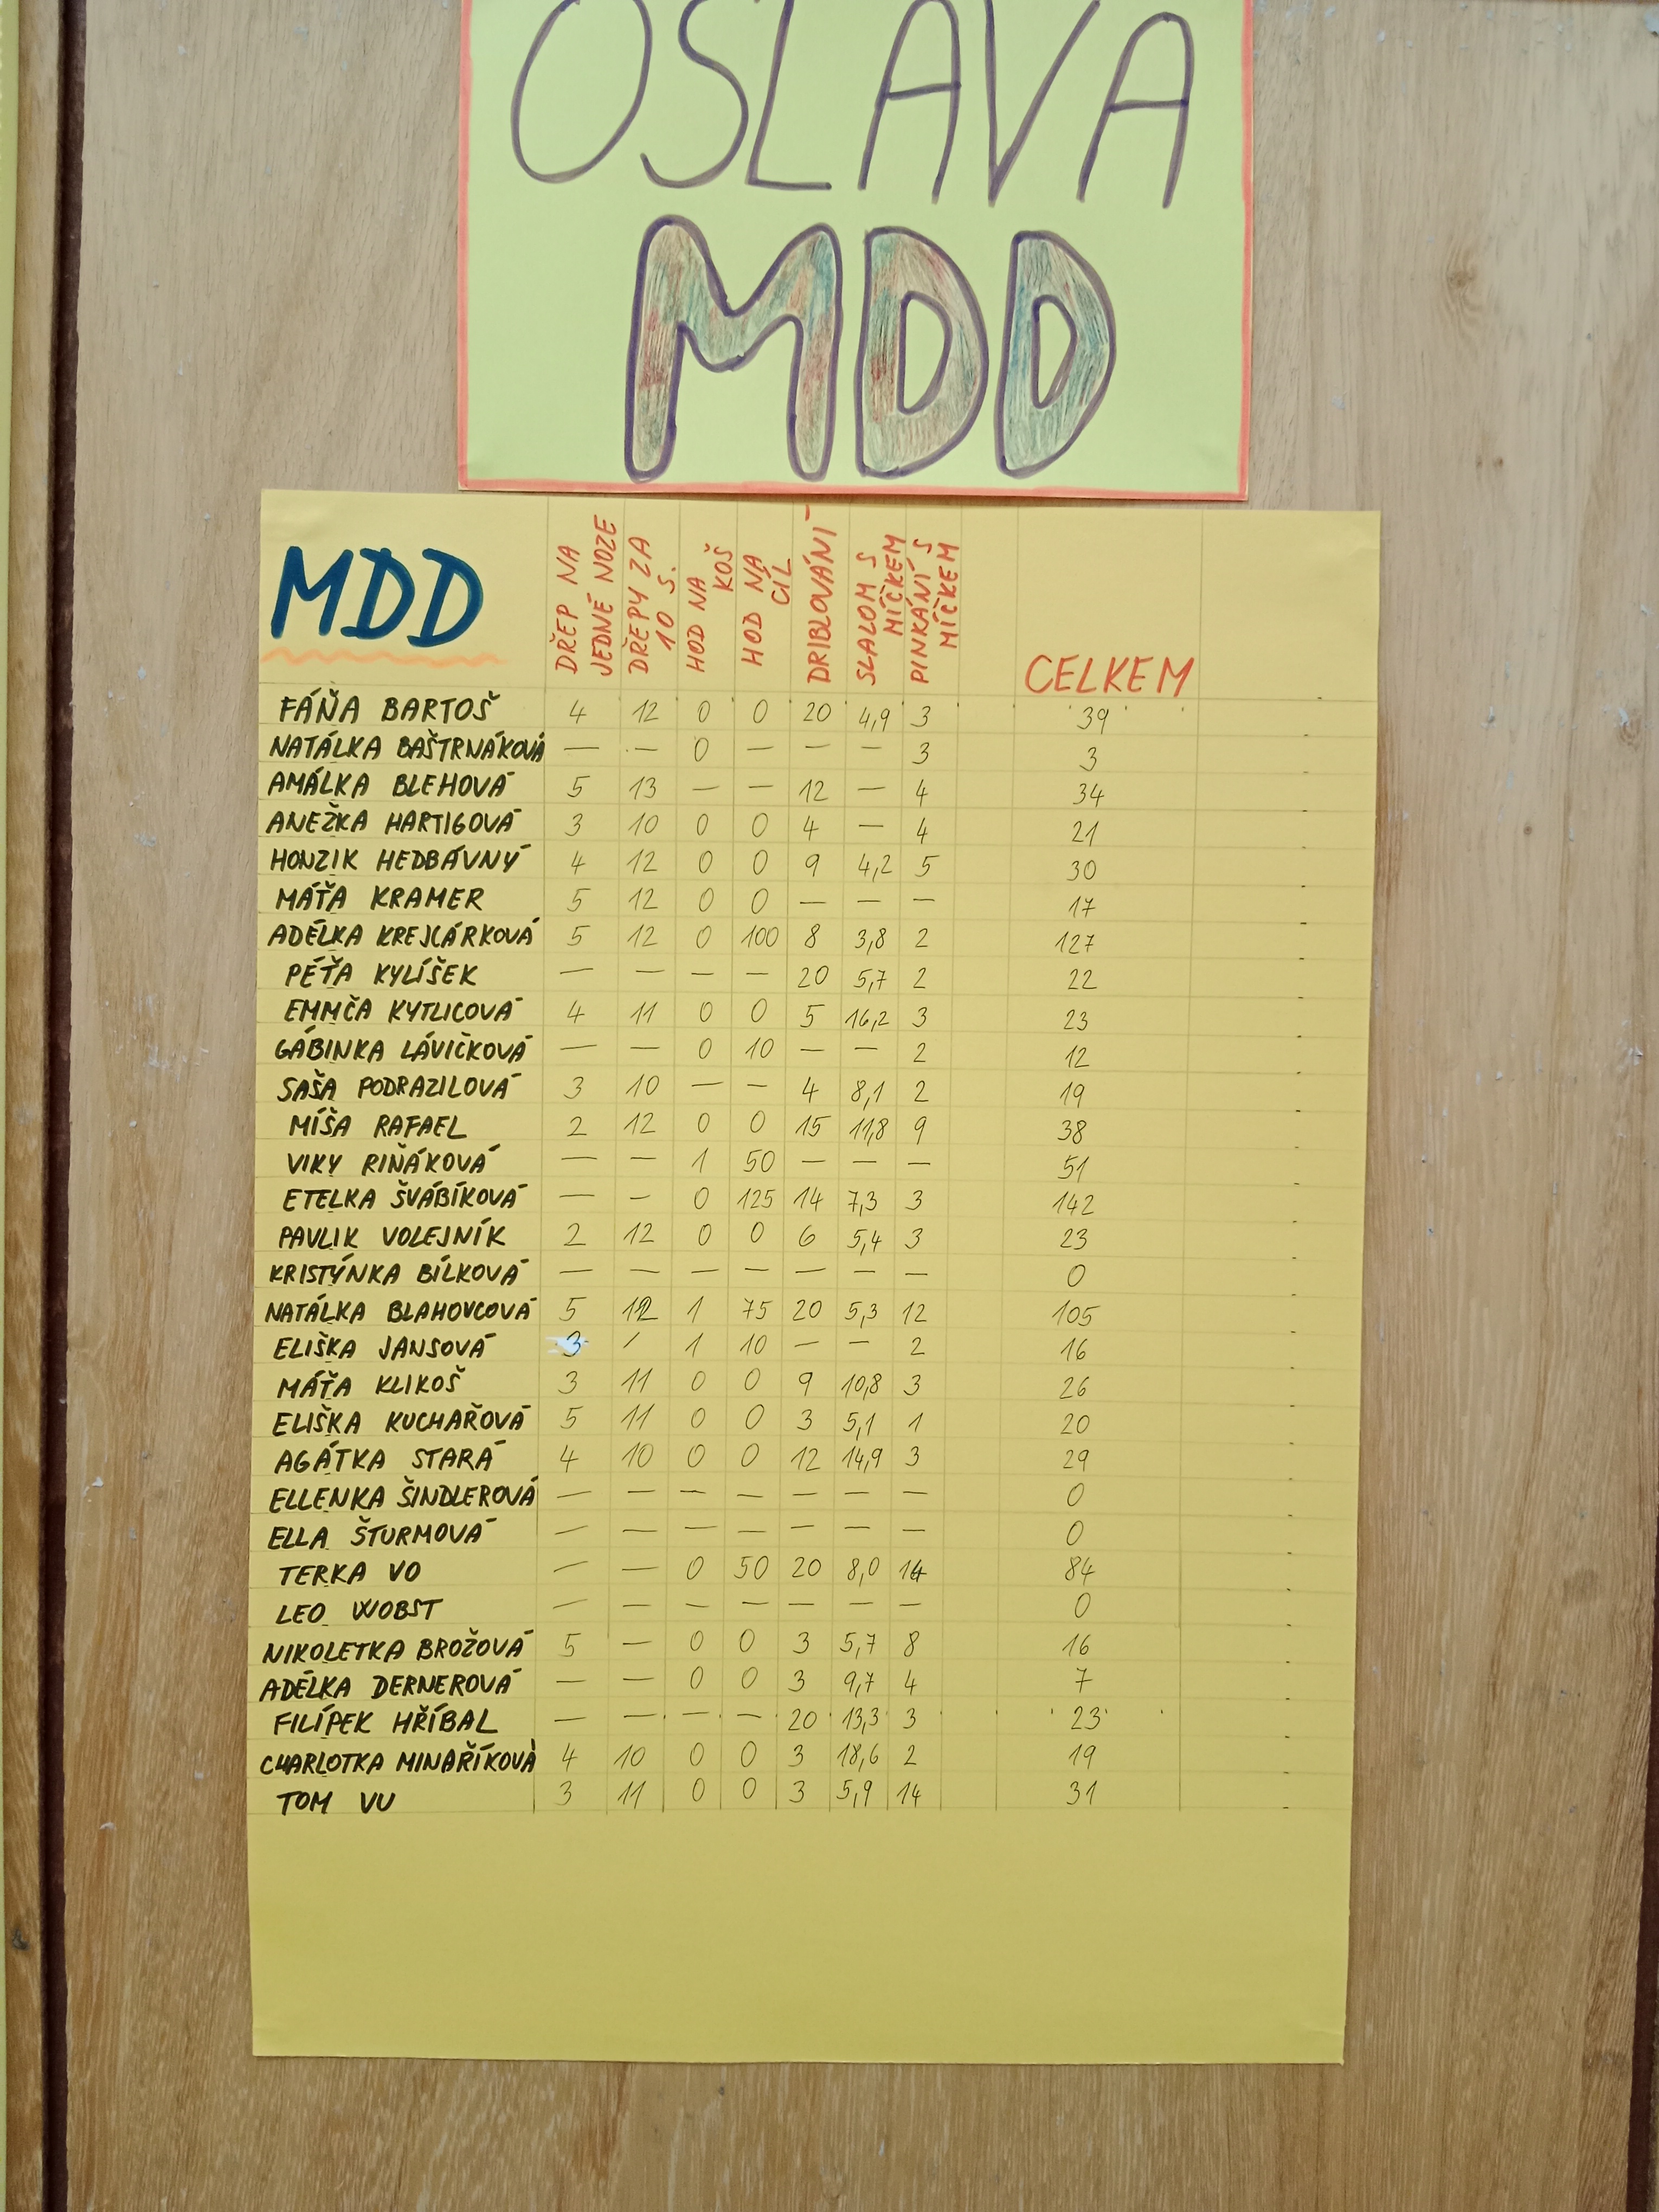 OSLAVA
MDD
MDD
DŘEP NA JEDNÉ NOZE
DŘEPY ZA 10 S.
HOD NA KOŠ
HOD NA CÍL
DRIBLOVÁNÍ
SLALOM S MÍČKEM
PINKÁNÍ S MÍČKEM
CELKEM
FÁŇA BARTOŠ 4 12 0 0 20 4,9 3 39
NATÁLKA BAŠTRNÁKOVÁ — — 0 — — — 3 3
AMÁLKA BLEHOVÁ 5 13 — — 12 — 4 34
ANEŽKA HARTIGOVÁ 3 10 0 0 4 — 4 21
HONZIK HEDBÁVNÝ 4 12 0 0 9 4,2 5 30
MÁŤA KRAMER 5 12 0 0 — — — 17
ADÉLKA KREJCÁRKOVÁ 5 12 0 100 8 3,8 2 127
PÉŤA KYLÍŠEK — — — — 20 5,7 2 22
EMMČA KYTLICOVÁ 4 11 0 0 5 16,2 3 23
GÁBINKA LÁVIČKOVÁ — — 0 10 — — 2 12
SAŠA PODRAZILOVÁ 3 10 — — 4 8,1 2 19
MÍŠA RAFAEL 2 12 0 0 15 11,8 9 38
VIKY RIŇÁKOVÁ — — 1 50 — — — 51
ETELKA ŠVÁBÍKOVÁ — — 0 125 14 7,3 3 142
PAVLIK VOLEJNÍK 2 12 0 0 6 5,4 3 23
KRISTÝNKA BÍLKOVÁ — — — — — — — 0
NATÁLKA BLAHOVCOVÁ 5 12 1 75 20 5,3 12 105
ELIŠKA JANSOVÁ 3 / 1 10 — — 2 16
MÁŤA KLIKOŠ 3 11 0 0 9 10,8 3 26
ELIŠKA KUCHAŘOVÁ 5 11 0 0 3 5,1 1 20
AGÁTKA STARÁ 4 10 0 0 12 14,9 3 29
ELLENKA ŠINDLEROVÁ — — — — — — — 0
ELLA ŠTURMOVÁ — — — — — — — 0
TERKA VO — — 0 50 20 8,0 14 84
LEO WOBST — — — — — — — 0
NIKOLETKA BROŽOVÁ 5 — 0 0 3 5,7 8 16
ADÉLKA DERNEROVÁ — — 0 0 3 9,7 4 7
FILÍPEK HŘÍBAL — — — — 20 13,3 3 23
CHARLOTKA MINAŘÍKOVÁ 4 10 0 0 3 18,6 2 19
TOM VU 3 11 0 0 3 5,9 14 31